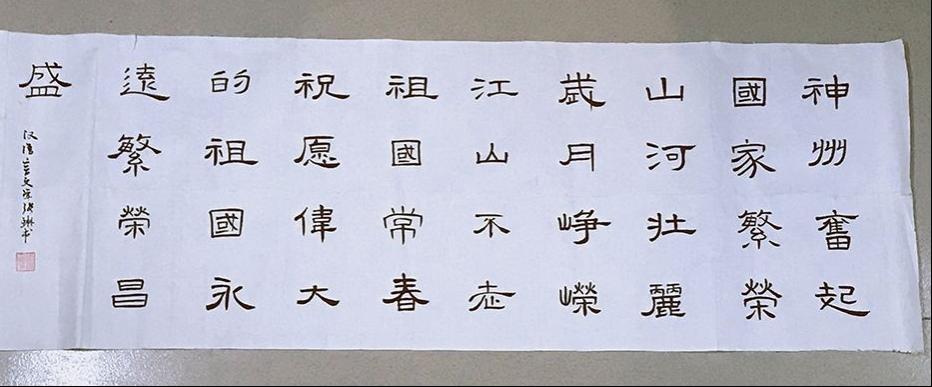 神州奮起
國家繁榮
山河壯麗
歲月崢嶸
江山不老
祖國常春
祝愿偉大
的祖國永
遠繁榮昌
盛